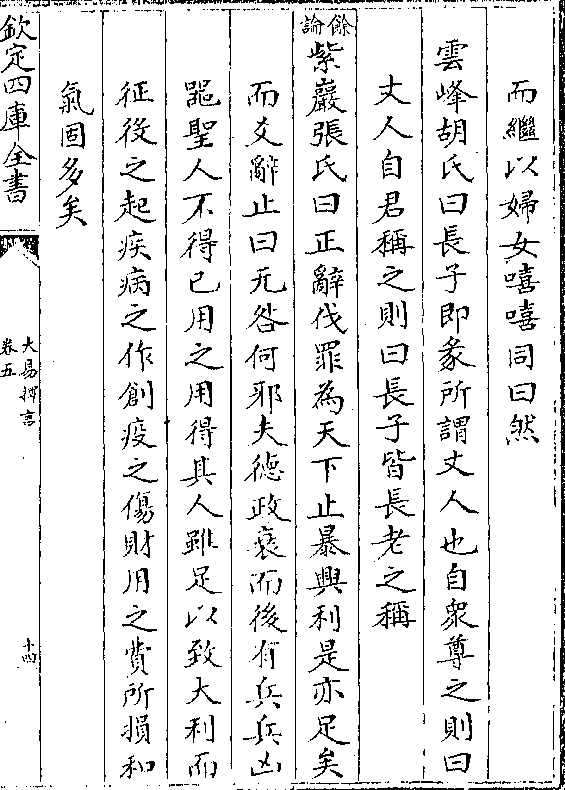 而繼以婦女嘻嘻同曰然
雲峰胡氏曰長子即彖所謂丈人也自衆尊之則曰
丈人自君稱之則曰長子皆長老之稱
餘論
紫巖張氏曰正辭伐罪為天下止暴興利是亦足矣
而爻辭止曰无咎何邪夫德政衰而後有兵兵凶
器聖人不得已用之用得其人雖足以致大利而
征役之起疾病之作創痍之傷財用之費所損和
氣固多矣
欽定四庫全書
大易擇言
卷五
十四